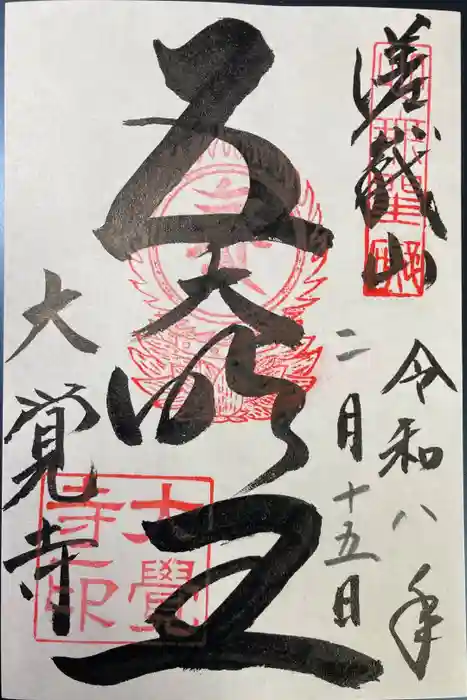 嵯峨山
令和八年
二月十五日
五大明王
大覚寺
大覺寺印